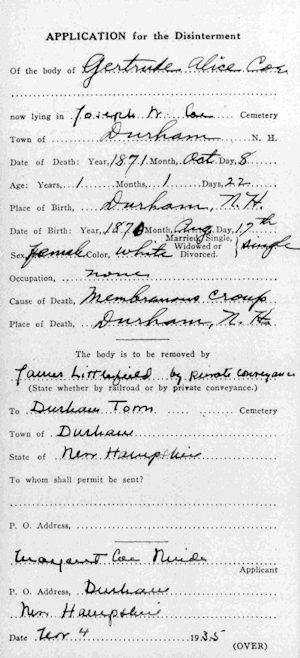 APPLICATION for the Disinterment
Of the body of Gertrude Alice Coe
now lying in Joseph W. Coe Cemetery
Town of Durham N. H.
Date of Death: Year, 1871 Month, Oct Day, 8
Age: Years, 1 Months, 1 Days, 22
Place of Birth, Durham, N. H.
Date of Birth: Year, 1870 Month, Aug Day, 17th
Sex, female Color, white Married, Single, Widowed or Divorced. } single
Occupation, none
Cause of Death, Membranous Croup
Place of Death, Durham, N. H.
The body is to be removed by
James Littlefield by private conveyance
(State whether by railroad or by private conveyance.)
To Durham Town Cemetery
Town of Durham
State of New Hampshire
To whom shall permit be sent?
P. O. Address,
Margaret Coe
Applicant
P. O. Address, Durham
New Hampshire
Date Nov 4 1935
(OVER)